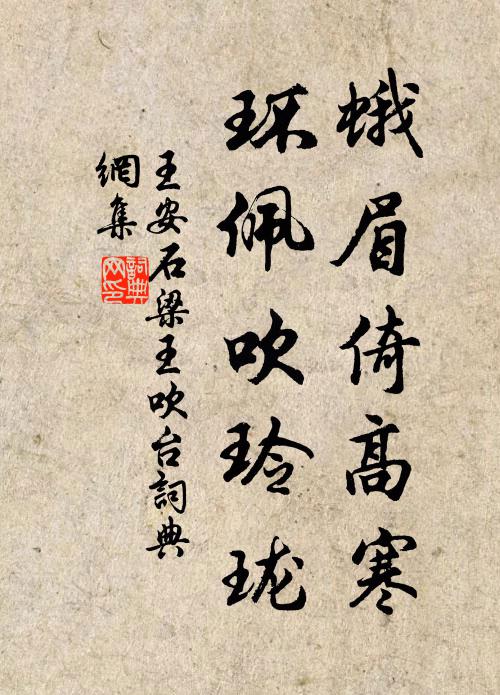 蛾眉倚高寒
环佩吹玲珑
王安石梁王吹台詞典
網集
詞典
网印